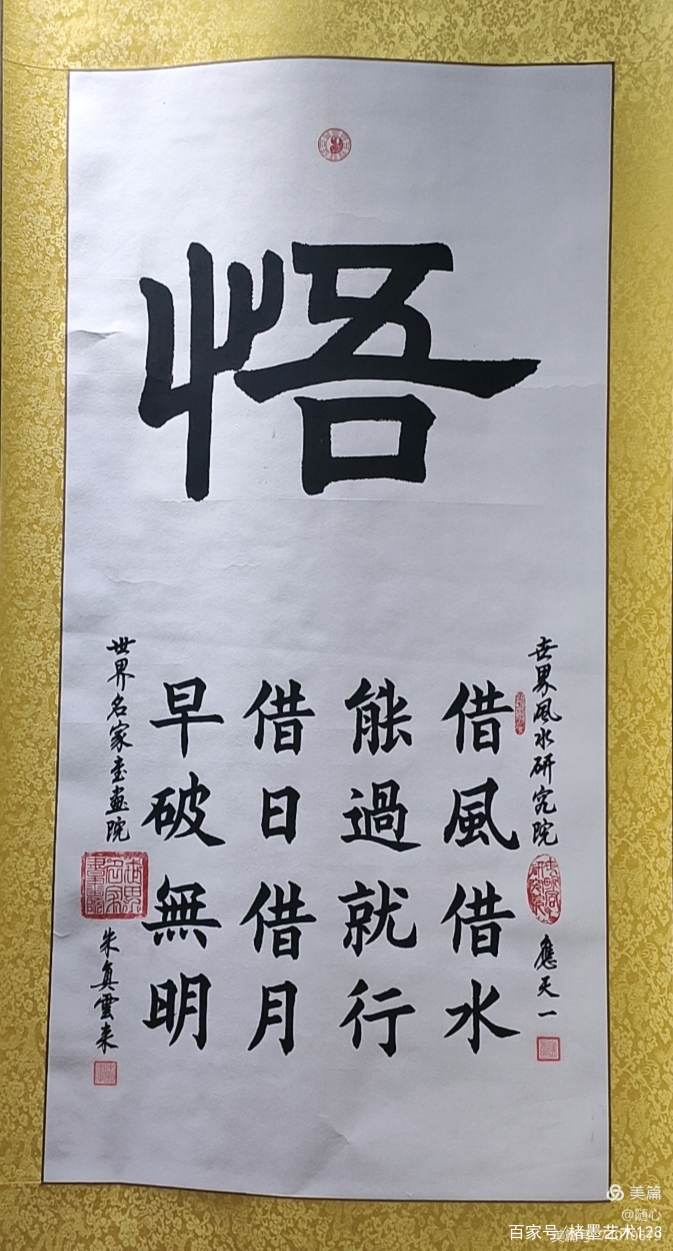 悟
世界風水研究院
應天一
借風借水
能過就行
借日借月
早破無明
世界名家書畫院
朱真雲来
美篇
@随心
百家号/楮墨艺术123